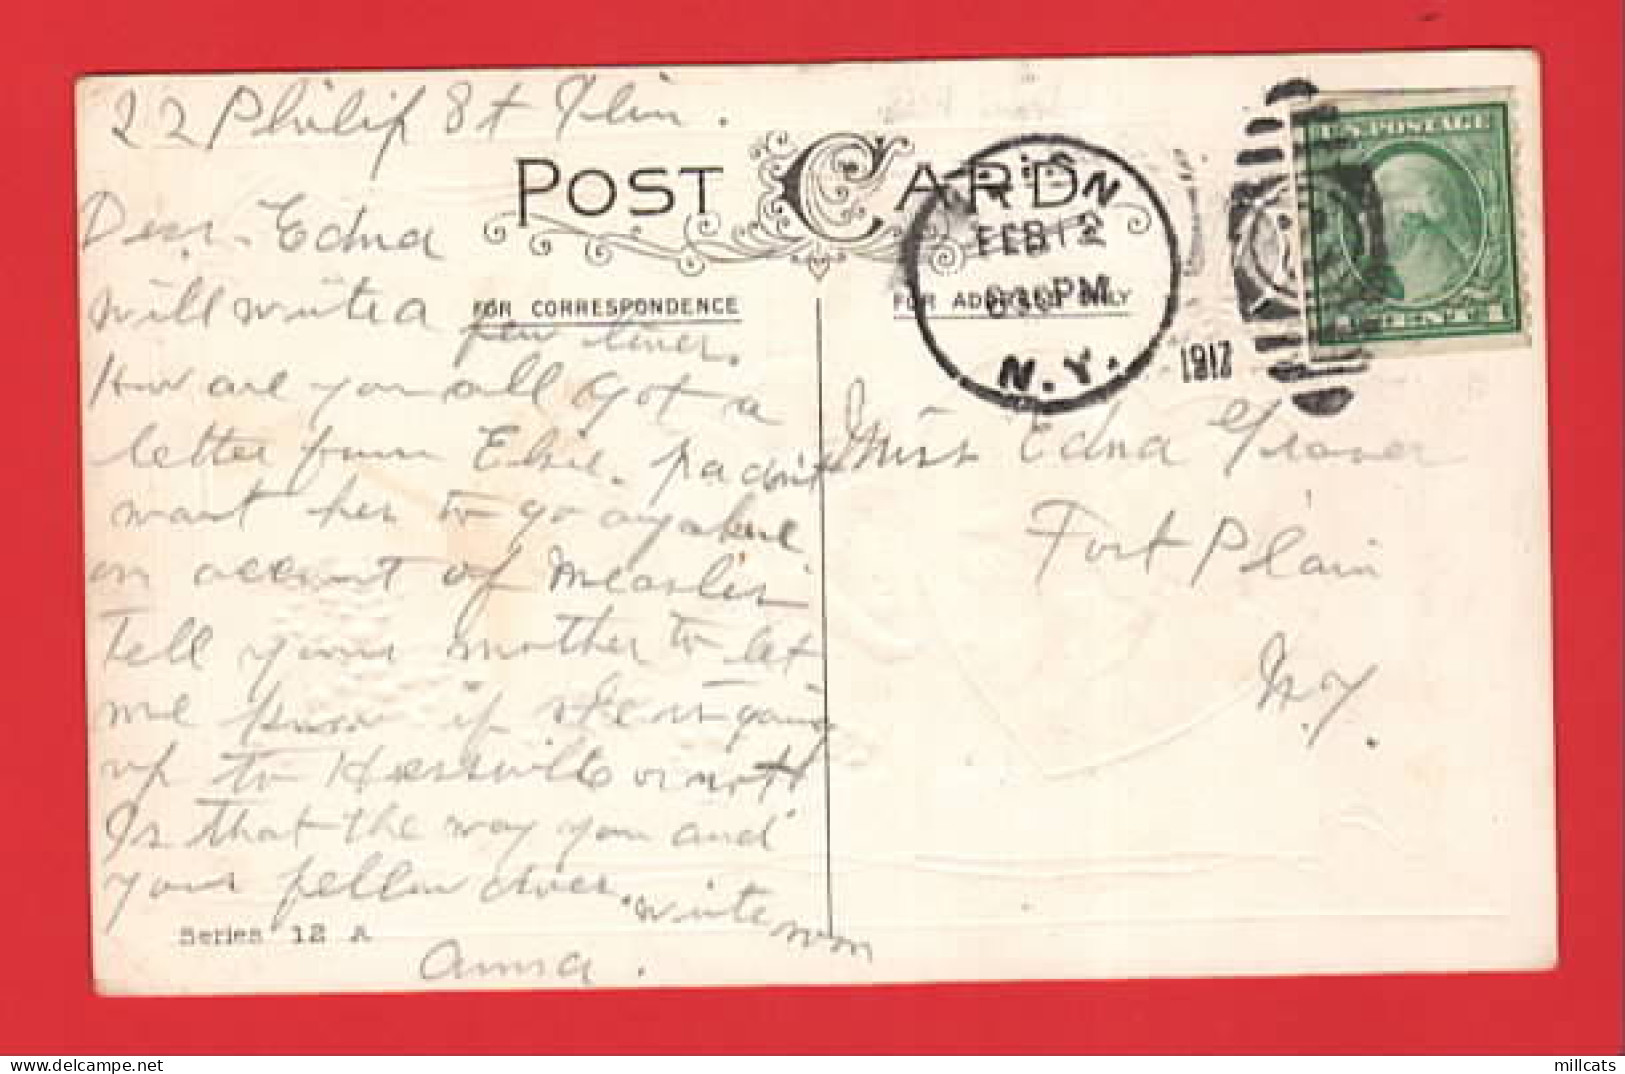 22 Philip St Ilion.
POST CARD
Dear Edna
will write a few lines.
How are you all got a
letter from Elsie. pa don't
want her to go anywhere
on account of Measles
Tell your mother to let
me know if she is going
up to Hessville or not
Is that the way you and
your fellow does. write soon
Anna.
FOR CORRESPONDENCE
FOR ADDRESS ONLY
Series 12 A
FEB 12
630 PM
N.Y.
1917
U.S. POSTAGE
Miss Edna
Fort Plain
N.Y.
millcats